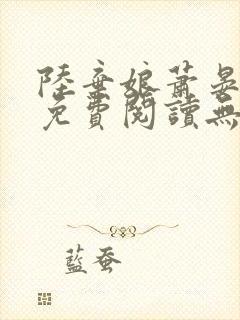 陸棄娘蕭晏
免費閱讀無
藍蚕